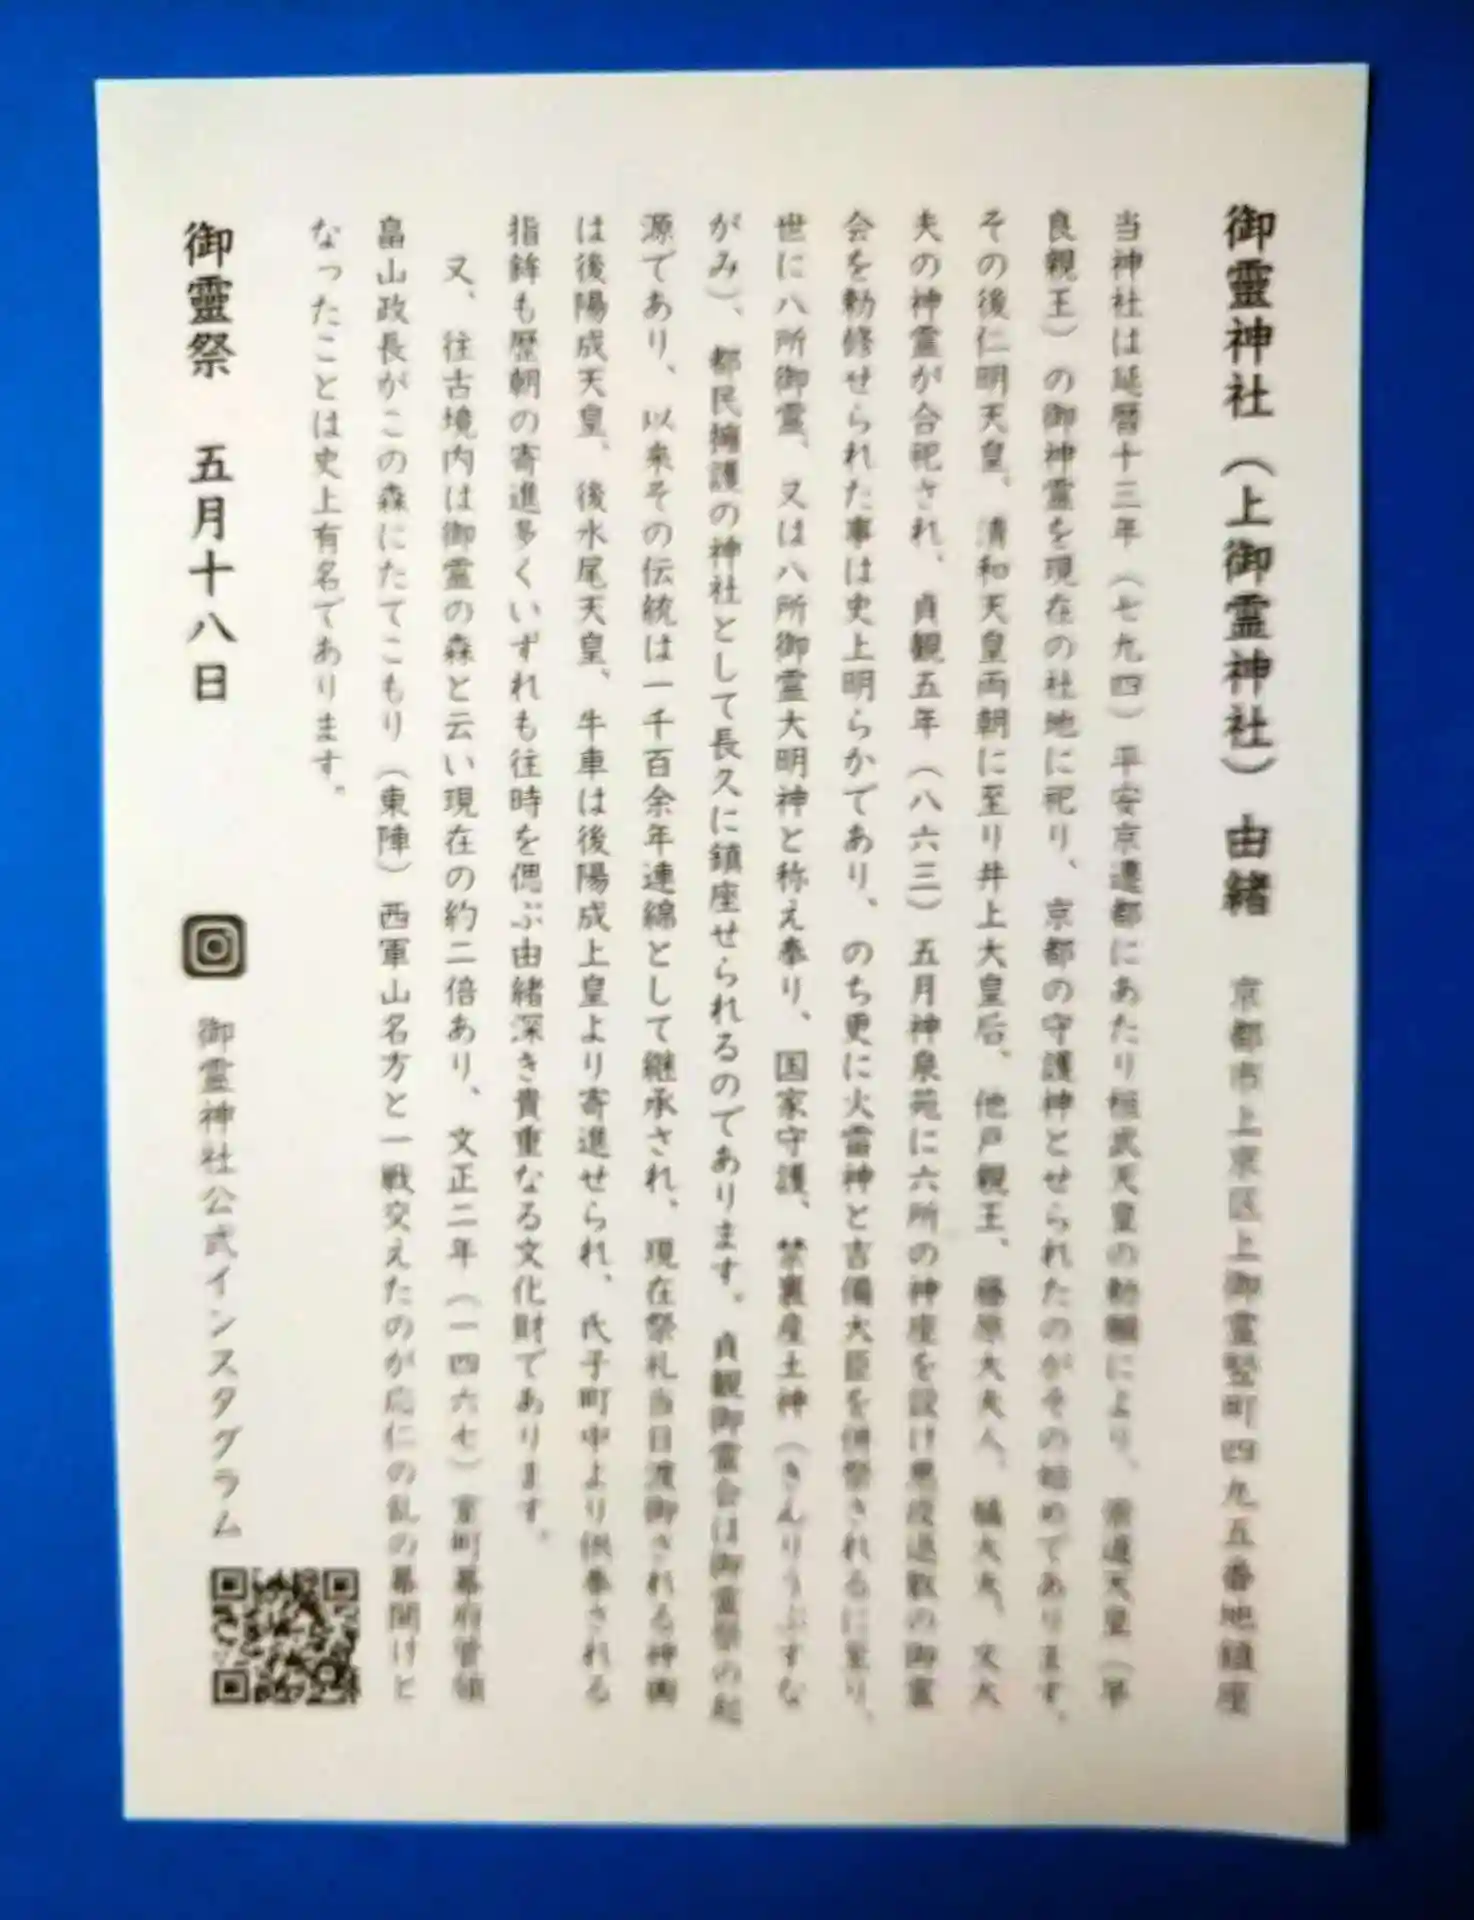 御霊神社(上御霊神社)由緒 京都市上京区上御霊竪町四九五番地鎮座
当神社は延暦十三年(七九四)平安京遷都にあたり桓武天皇の勅願により、崇道天皇(早
良親王)の御神霊を現在の社地に祀り、京都の守護神とせられたのがその始めであります。
その後仁明天皇、清和天皇両朝に至り井上大皇后、他戸親王、藤原大夫人、橘大夫、文大
夫の神霊が合祀され、貞観五年(八六三)五月神泉苑に六所の神座を設け悪疫退散の御霊
会を勅修せられた事は史上明らかであり、のち更に火雷神と吉備大臣を併祭されるに至り、
世に八所御霊、又は八所御霊大明神と称え奉り、国家守護、禁裏産土神(きんりうぶすな
がみ)、都民擁護の神社として長久に鎮座せられるのであります。貞観御霊会は御霊祭の起
源であり、以来その伝統は一千百余年連綿として継承され、現在祭礼当日渡御される神輿
は後陽成天皇、後水尾天皇、牛車は後陽成上皇より寄進せられ、氏子町中より供奉される
指鉾も歴朝の寄進多くいずれも往時を偲ぶ由緒深き貴重なる文化財であります。
又、往古境内は御霊の森と云い現在の約二倍あり、文正二年(一四六七)室町幕府管領
畠山政長がこの森にたてこもり(東陣)西軍山名方と一戦交えたのが応仁の乱の幕開けと
なったことは史上有名であります。
御靈祭 五月十八日
御霊神社公式インスタグラム